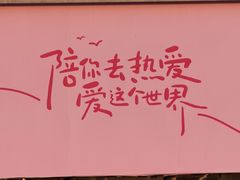 陪你去热爱
爱这个世界